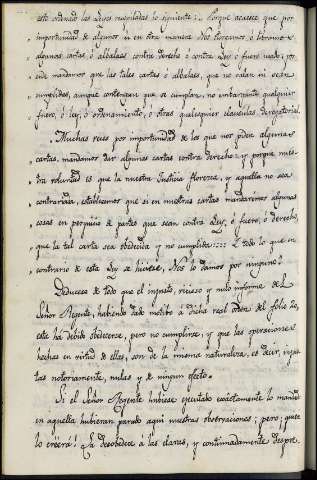 esté ordenado las Leyes recopiladas lo siguiente: "Porque acaesce que por
" importunidad de algunos ú en otra manera Nos otorgamos ó libramos
" algunas cartas, ó albalaes contra derecho ó contra Ley, ó fuero usado; por
" ende mandamos que las tales cartas ó albalaes, que no valan ni sean
" cumplidas, aunque contengan que se cumplan, no embargante qualquier
" fuero, ó ley, ó ordenamiento, ó otras qualesquier clausulas derogatorias.
" Muchas veces por importunidad de los que nos piden algunas
cartas, mandamos dar algunas cartas contra derecho: y porque nues-
tra voluntad es que la nuestra Justicia florezca, y aquella no sea
contrariada, establecemos que si en nuestras cartas mandaremos algunas
cosas en perjuicio de partes que sean contra Ley, ó fuero, ó derecho,
que la tal carta sea obedecida y no cumplida:::: E todo lo que en
contrario de esta Ley se hiciese, Nos lo damos por ninguno."
Deducese de todo que el injusto, vicioso y nulo informe del
Señor Regente, habiendo dado motivo á dicha real orden del folio
este ha debido obedecerse, pero no cumplirse; y que las operaciones
hechas en virtud de ellas, son de la misma naturaleza, es decir, injus-
tas notoriamente, nulas y de ningun efecto.
Si el Señor Regente hubiese ejecutado exáctamente lo mandado
en aquella hubieran parado aqui nuestras observaciones; pero ¡quien
lo creerá! La desobedece á las claras, y continuadamente despre-